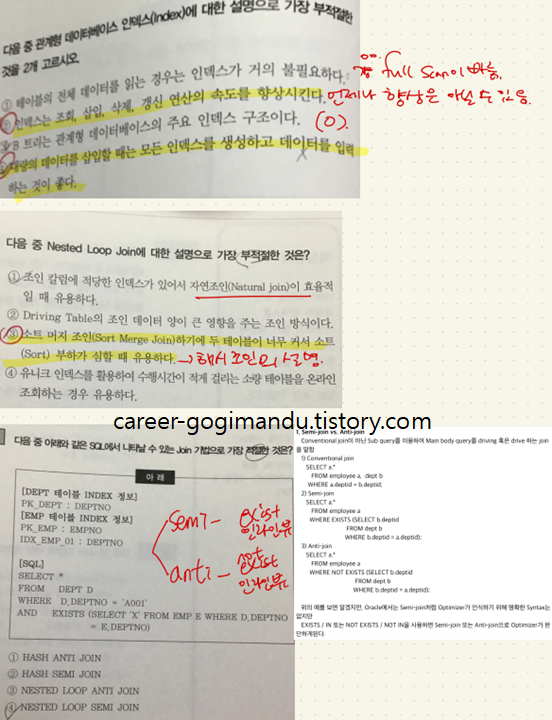 다음 중 관계형 데이터베이스 인덱스(Index)에 대한 설명으로 가장 부적절한
것을 2개 고르시오.
① 테이블의 전체 데이터를 읽는 경우는 인덱스가 거의 불필요하다.
full scan이 빠름.
② 인덱스는 조회, 삽입, 삭제, 갱신 연산의 속도를 향상시킨다.
언제나 향상은 아닐 수 있음.
③ B 트리는 관계형 데이터베이스의 주요 인덱스 구조이다. (O).
④ 대량의 데이터를 삽입할 때는 모든 인덱스를 생성하고 데이터를 입력
하는 것이 좋다.
다음 중 Nested Loop Join에 대한 설명으로 가장 부적절한 것은?
① 조인 칼럼에 적당한 인덱스가 있어서 자연조인(Natural join)이 효율적
일 때 유용하다.
② Driving Table의 조인 데이터 양이 큰 영향을 주는 조인 방식이다.
③ 소트 머지 조인(Sort Merge Join)하기에 두 테이블이 너무 커서 소트
(Sort) 부하가 심할 때 유용하다. → 해시조인의 설명.
④ 유니크 인덱스를 활용하여 수행시간이 적게 걸리는 소량 테이블을 온라인
조회하는 경우 유용하다.
career-gogimandu.tistory.com
다음 중 아래와 같은 SQL에서 나타날 수 있는 Join 기법으로 가장 적절한 것은?
아 래
[DEPT 테이블 INDEX 정보]
PK_DEPT : DEPTNO
[EMP 테이블 INDEX 정보]
PK_EMP : EMPNO
IDX_EMP_01 : DEPTNO
[SQL]
SELECT *
FROM DEPT D
WHERE D.DEPTNO = 'A001'
AND EXISTS (SELECT 'X' FROM EMP E WHERE D.DEPTNO
= E.DEPTNO)
semi - exist
인라인뷰
anti - not exist
인라인뷰
① HASH ANTI JOIN
② HASH SEMI JOIN
③ NESTED LOOP ANTI JOIN
④ NESTED LOOP SEMI JOIN
1. Semi-join vs. Anti-join
Conventional join이 아닌 Sub query를 이용하여 Main body-query를 driving 혹은 drive 하는 join
을 말함
1) Conventional join
SELECT a.*
FROM employee a, dept b
WHERE a.deptid = b.deptid;
2) Semi-join
SELECT a.*
FROM employee a
WHERE EXISTS (SELECT b.deptid
FROM dept b
WHERE b.deptid = a.deptid);
3) Anti-join
SELECT a.*
FROM employee a
WHERE NOT EXISTS (SELECT b.deptid
FROM dept b
WHERE b.deptid = a.deptid);
위의 예를 보면 알겠지만, Oracle에서는 Semi-join처럼 Optimizer가 인식하기 위해 명확한 Syntax는
없지만
EXISTS / IN 또는 NOT EXISTS / NOT IN을 사용하면 Semi-join 또는 Anti-join으로 Optimizer가 판
단하게된다.